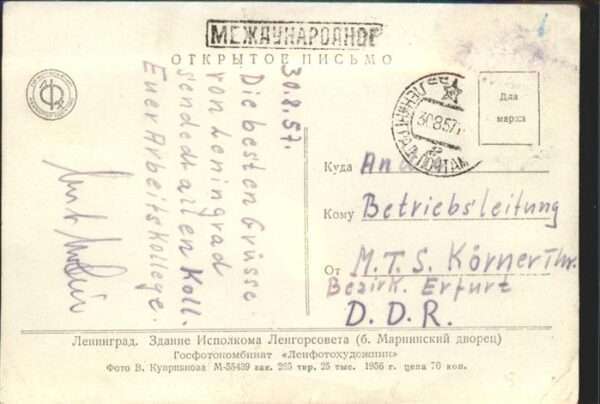 МЕЖДУНАРОДНОЕ
ОТКРЫТОЕ ПИСЬМО
30.8.57.
Die besten Grüsse
von Leningrad
sendet allen Koll.
Euer Arbeitskollege.
ЛЕНИНГРАД ПОЧТАМТ
30857
Для
марки
Куда An d
Кому Betriebsleitung
От M.T.S. Körner Thr.
Bezirk. Erfurt
D.D.R.
Ленинград. Здание Исполкома Ленгорсовета (б. Мариинский дворец)
Госфотокомбинат «Ленфотохудожник»
Фото В. Куприянова М-55439 зак. 265 тир. 25 тыс. 1956 г. цена 70 коп.